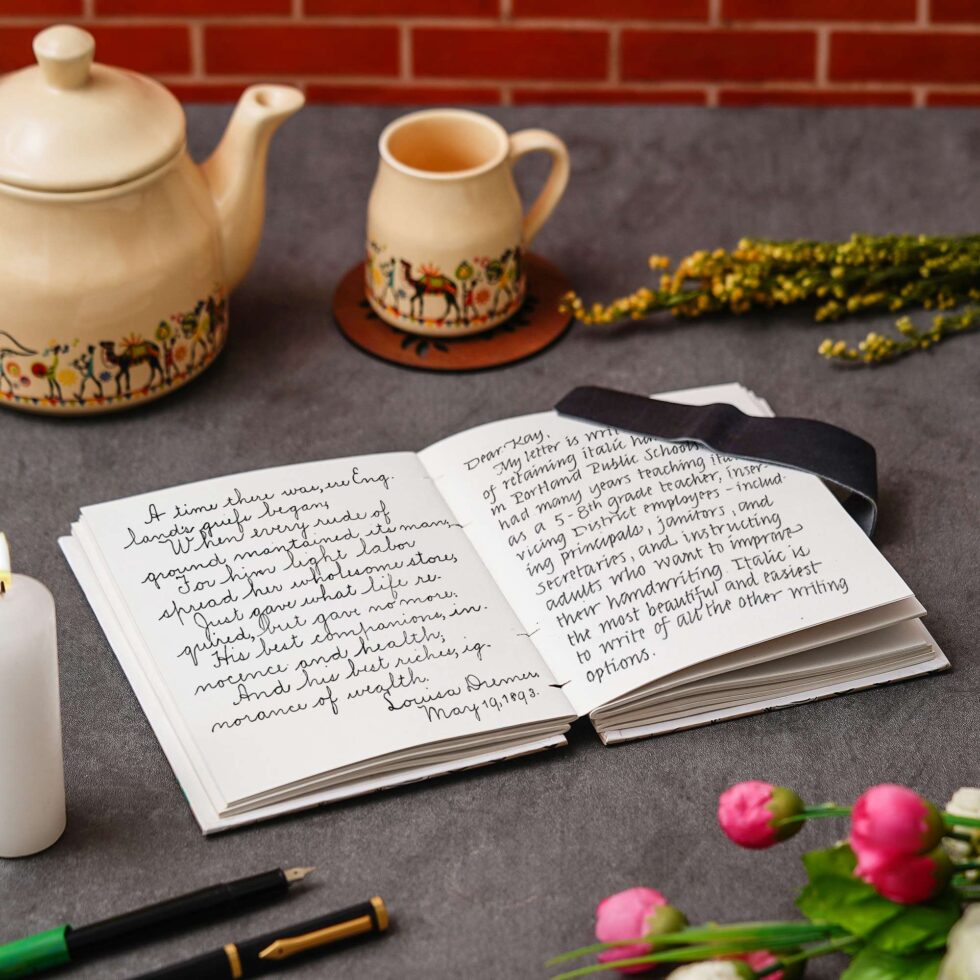 A time there was, ere Eng.
land's griefs began,
When every rude of
ground mantained its mann,
For him light labor
spread her wholesome store,
Just gave what life re-
quired, but gave no more.
His best companions, in-
nocence and health;
And his best riches, ig-
norance of wealth.
Louisa
May 19, 1893.
Dear Kay,
My letter is
of retaining italic
in Portland Public Schools
had many years teaching
as a 5-8th grade teacher, inser-
vicing District employees - includ-
ing principals, janitors, and
secretaries, and instructing
adults who want to improve
their handwriting Italic is
the most beautiful and easiest
to write of all the other writing
options.